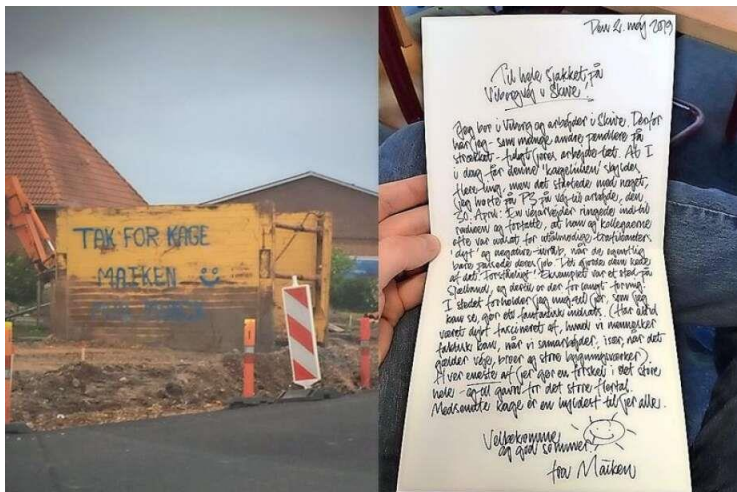 TAK FOR KAGE
MAIKEN
Den 2. maj 2019
Til hele sjakket på
Viborgvej i Skive!
Jeg bor i Viborg og arbejder i Skive. Derfor
har jeg - som mange andre pendlere på
strækket - fulgt jeres arbejde tæt. At I
i dag får denne "kagehilsen" skyldes
flere ting, men det startede med noget,
jeg hørte på P5 på vej til arbejde, den
30. April: En vejarbejder ringede ind til
radioen og fortalte, at han og kollegaerne
ofte var udsat for utålmodige trafikanter
dyt og negative tilråb, når de egentlig
bare passede deres job. Det gjorde dem kede
af det. Forståeligt! Eksemplet var et sted på
Sjælland, og dertil er der for langt for mig.
I stedet forholder jeg mig til jer, som jeg
kan se, gør en fantastisk indsats. (Har altid
været dybt fascineret af, hvad vi mennesker
faktisk kan, når vi samarbejder, især, når det
gælder veje, broer og store bygningsværker).
Hver eneste af jer gør en forskel i det store
hele - og til gavn for det store flertal.
Medsendte kage er en hyldest til jer alle.
Velbekomme
og god sommer!
fra Maiken